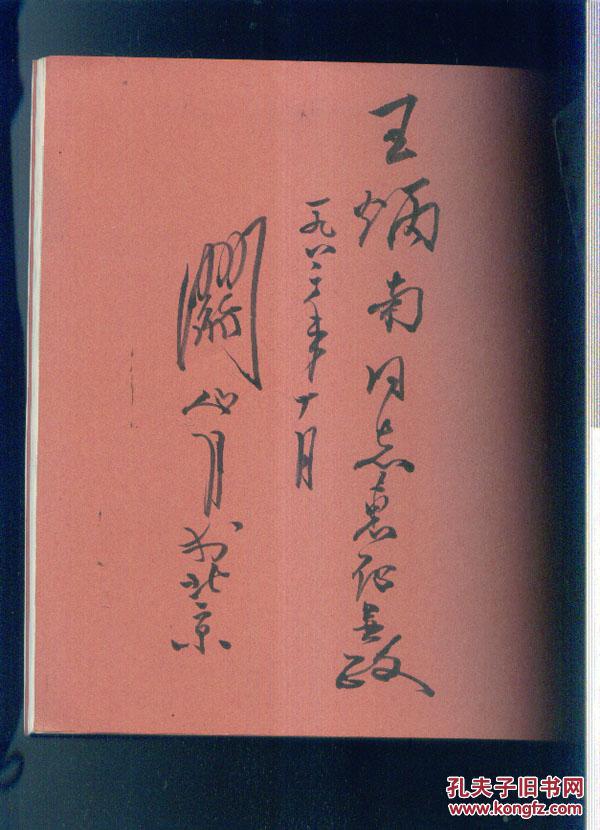 王炳南同志惠存並政
一九八二年十月
關山月於北京
孔夫子旧书网
www.kongfz.com